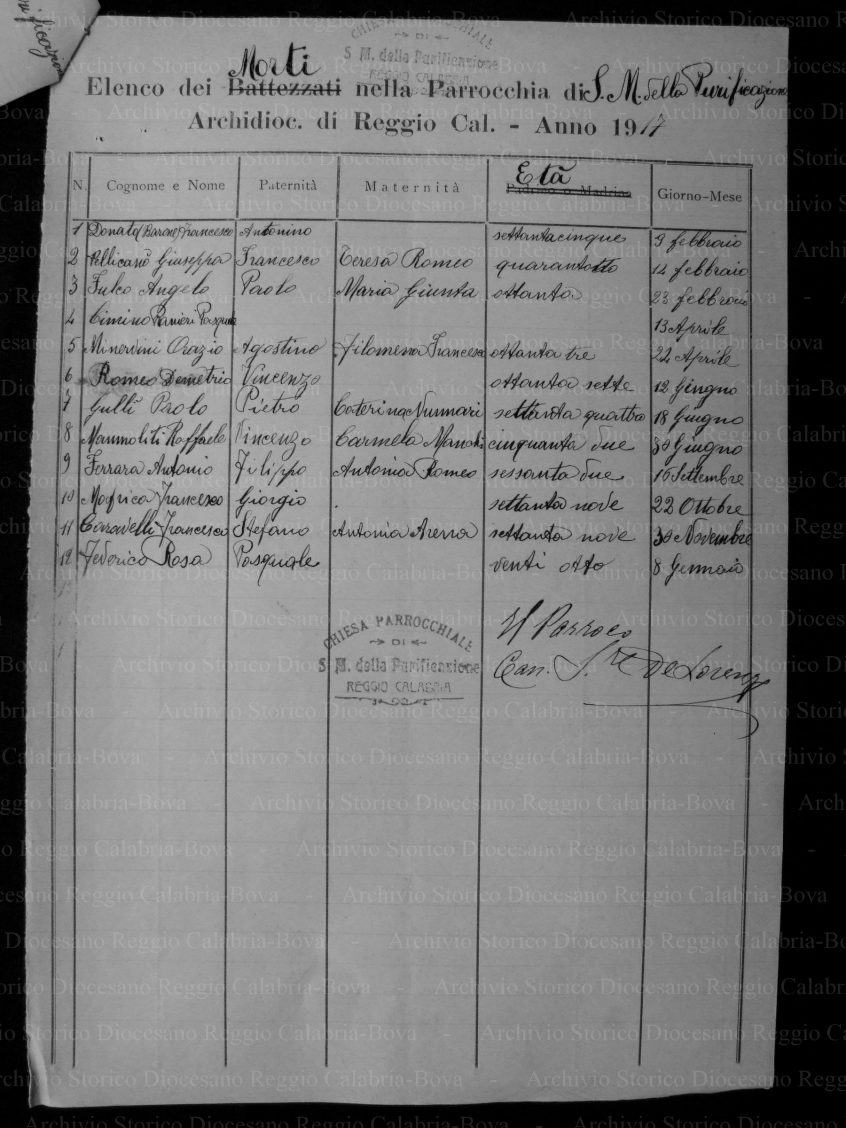 CHIESA PARROCCHIALE
DI
S M. della Purificazione
REGGIO CALABRIA
Morti
Elenco dei Battezzati nella Parrocchia di S. M. della Purificazione
Archidioc. di Reggio Cal. - Anno 1917
Età
N. Cognome e Nome Paternità Maternità Padrino - Madrina Giorno-Mese
1 Donato (Barone) Francesco Antonino settantacinque 9 febbraio
2 Pellicanò Giuseppa Francesco Teresa Romeo quarantotto 14 febbraio
3 Fulco Angelo Paolo Maria Giunta ottanta 23 febbraio
4 Cimino Ranieri Pasqua 13 Aprile
5 Minervini Orazio Agostino Filomena Francesco ottanta tre 24 Aprile
6 Romeo Demetrio Vincenzo ottanta sette 12 Giugno
7 Gullì Paolo Pietro Caterina Nunnari settanta quattro 18 Giugno
8 Mammoliti Raffaele Vincenzo Carmela cinquanta due 30 Giugno
9 Ferrara Antonio Filippo Antonia Romeo sessanta due 16 Settembre
10 Francesco Giorgio settanta nove 22 Ottobre
11 Caravelli Francesco Stefano Antonia Arena settanta nove 30 Novembre
12 Federico Rosa Pasquale venti otto 8 Gennaio
Il Parroco
Can. De Lorenzo
CHIESA PARROCCHIALE
DI
S M. della Purificazione
REGGIO CALABRIA
Archivio Storico Diocesano Reggio Calabria-Bova